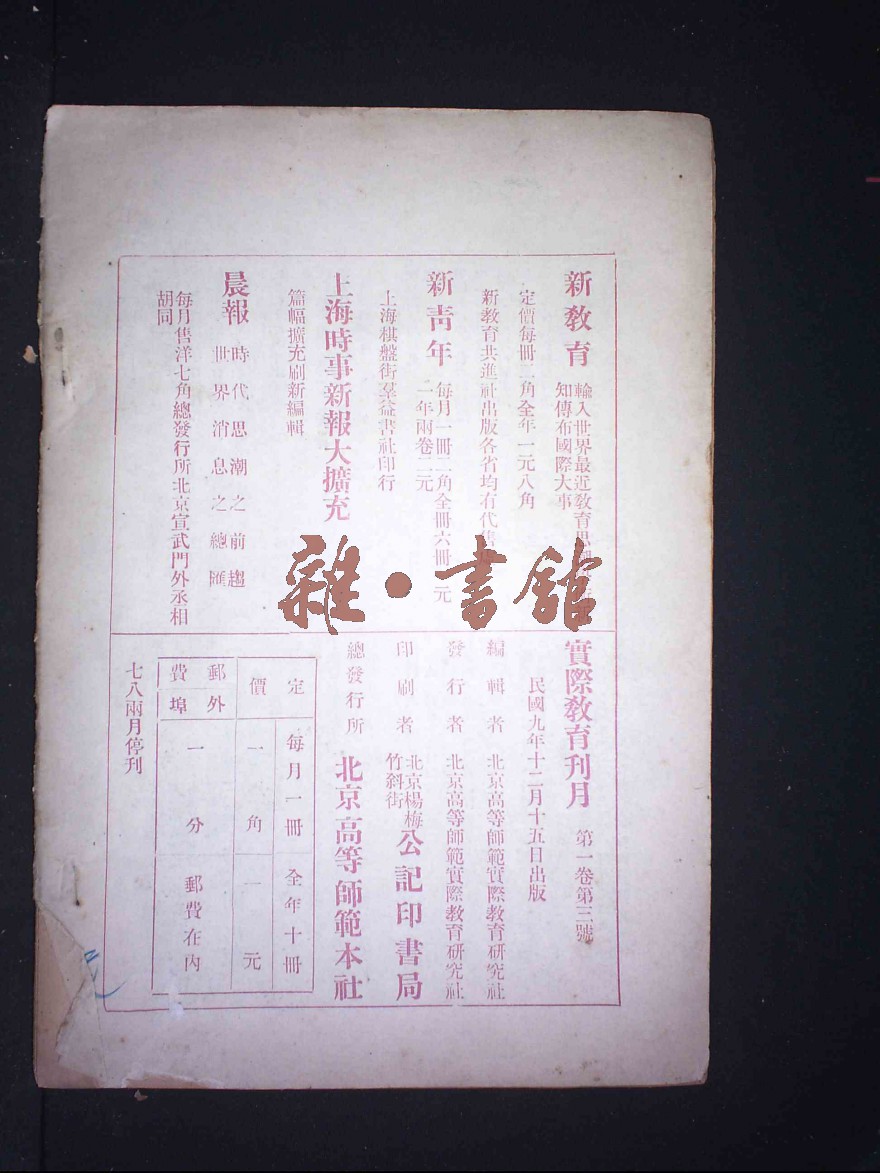 新教育
輸入世界最近教育思
知傳布國際大事
定價每冊二角全年一元八角
新教育共進社出版各省均有代售
新青年
每月一冊二角全冊六冊一元
一年兩卷二元
上海棋盤街羣益書社印行
上海時事新報大擴充
篇幅擴充刷新編輯
晨報
時代思潮之前趨
世界消息之總匯
每月售洋七角總發行所北京宣武門外丞相
胡同
實際教育刊月
第一卷第三號
民國九年十二月十五日出版
編輯者 北京高等師範實際教育研究社
發行者 北京高等師範實際教育研究社
印刷者 北京楊梅
竹斜街
公記印書局
總發行所 北京高等師範本社
定價
每月一冊 全年十冊
一角 一元
郵費
外埠
一分 郵費在內
七八兩月停刊
雜·書館